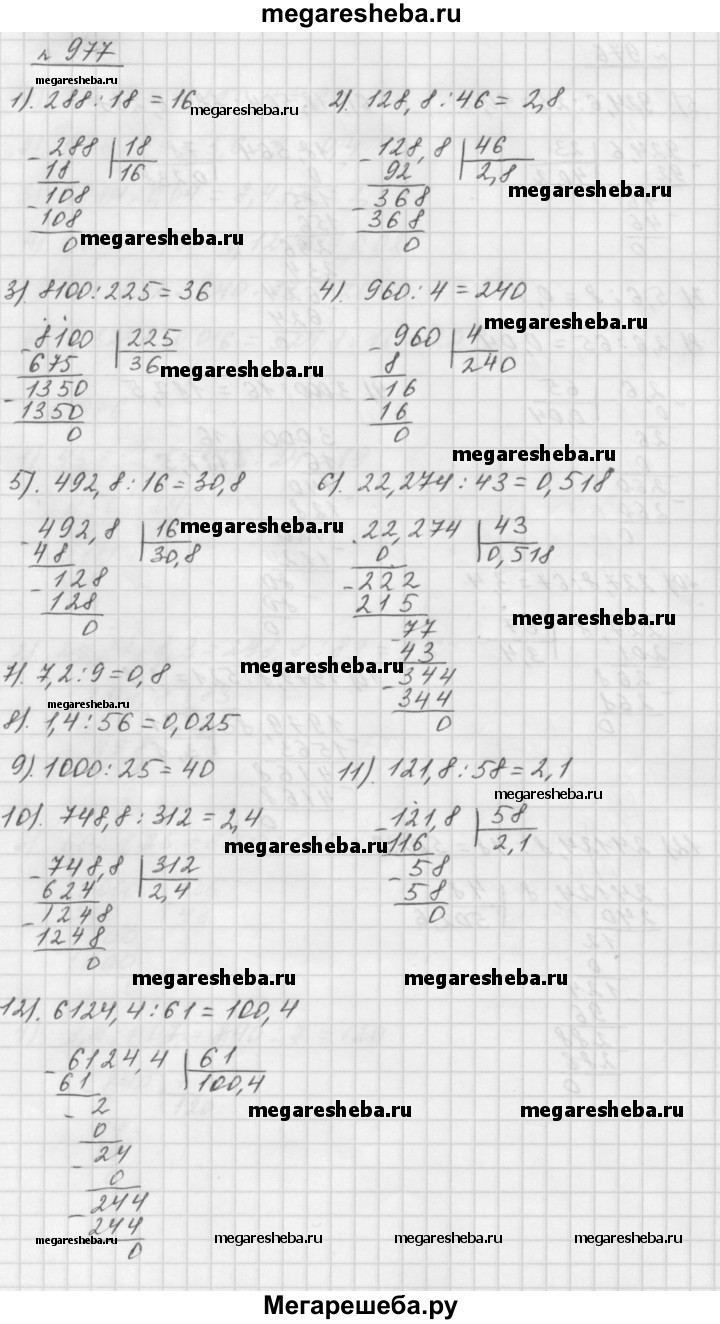 megaresheba.ru
№ 977
megaresheba.ru
1). 288 : 18 = 16 megaresheba.ru
2). 128,8 : 46 = 2,8
- 288 | 18
18 | 16
- 108
108
0
megaresheba.ru
- 128,8 | 46
92 | 2,8
- 368
368
0
megaresheba.ru
3) 8100 : 225 = 36
4). 960 : 4 = 240
megaresheba.ru
- 8100 | 225
675 | 36
- 1350
1350
0
megaresheba.ru
- 960 | 4
8 | 240
- 16
16
0
megaresheba.ru
5). 492,8 : 16 = 30,8
6). 22,274 : 43 = 0,518
- 492,8 | 16
48 | 30,8
- 128
128
0
megaresheba.ru
22,274 | 43
0 | 0,518
- 222
215
- 77
43
- 344
344
0
megaresheba.ru
megaresheba.ru
7). 7,2 : 9 = 0,8
megaresheba.ru
8). 1,4 : 56 = 0,025
9). 1000 : 25 = 40
11). 121,8 : 58 = 2,1
megaresheba.ru
10). 748,8 : 312 = 2,4
megaresheba.ru
- 121,8 | 58
116 | 2,1
- 58
58
0
- 748,8 | 312
624 | 2,4
- 1248
1248
0
megaresheba.ru
megaresheba.ru
12). 6124,4 : 61 = 100,4
- 6124,4 | 61
61 | 100,4
- 2
0
- 24
0
- 244
244
0
megaresheba.ru
megaresheba.ru
megaresheba.ru
megaresheba.ru
megaresheba.ru
megaresheba.ru
Мегарешеба.ру